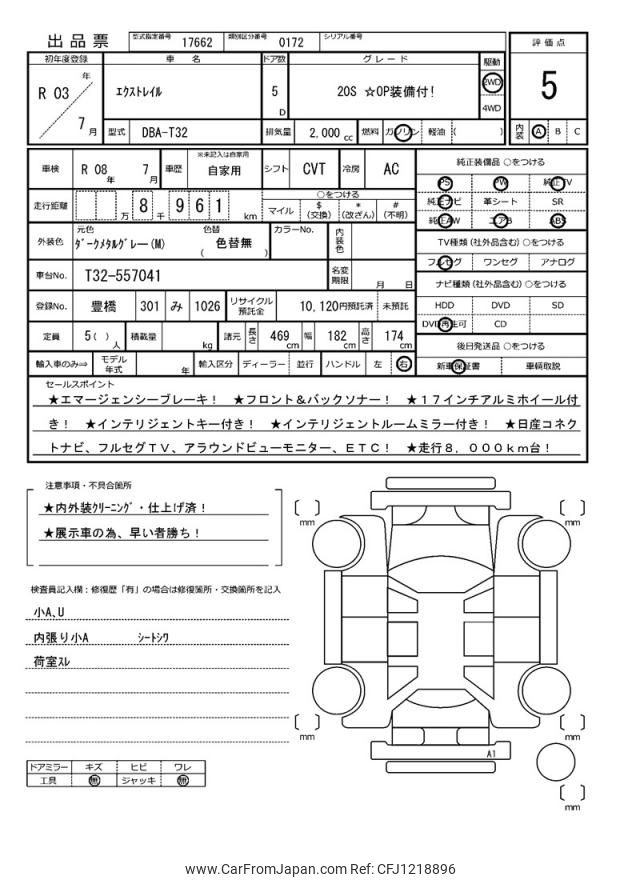 出品票 型式指定番号 17662 類別区分番号 0172 シリアル番号
評価点
5
内装 A B C
初年度登録 車名 ドア数 グレード 駆動
R 03 年 7 月
エクストレイル 5 D 20S ☆OP装備付! 2WD 4WD
型式 DBA-T32 排気量 2,000 cc 燃料 ガソリン 軽油 ( )
車検 R 08 年 7 月 車歴 ※未記入は自家用 自家用 シフト CVT 冷房 AC
走行距離 万 8 千 9 6 1 km ○をつける マイル $(交換) *(改ざん) #(不明)
外装色 元色 ダークメタルグレー(M) 色替 ( 色替無 ) カラーNo. 内装色
車台No. T32-557041 名変期限 月 日
登録No. 豊橋 301 み 1026 リサイクル預託金 10,120円預託済 未預託
定員 5( ) 人 積載量 kg 諸元 長さ 469 cm 幅 182 cm 高さ 174 cm
輸入車のみ⇒ モデル年式 年 輸入区分 ディーラー 並行 ハンドル 左 右
純正装備品 ○をつける
PS PW 純正TV
純正ナビ 革シート SR
純正AW エアB ABS
TV種類(社外品含む) ○をつける
フルセグ ワンセグ アナログ
ナビ種類(社外品含む) ○をつける
HDD DVD SD
DVD再生可 CD
後日発送品 ○をつける
新車保証書 車輌取説
セールスポイント
★エマージェンシーブレーキ! ★フロント&バックソナー! ★17インチアルミホイール付
き! ★インテリジェントキー付き! ★インテリジェントルームミラー付き! ★日産コネク
トナビ、フルセグTV、アラウンドビューモニター、ETC! ★走行8,000km台!
注意事項・不具合箇所
★内外装クリーニング・仕上げ済!
★展示車の為、早い者勝ち!
検査員記入欄:修復歴「有」の場合は修復箇所・交換箇所を記入
小A、U
内張り小A シートシワ
荷室スレ
ドアミラー キズ ヒビ ワレ
工具 無 ジャッキ 無
mm
mm
mm
mm
A1
mm
www.CarFromJapan.com Ref: CFJ1218896